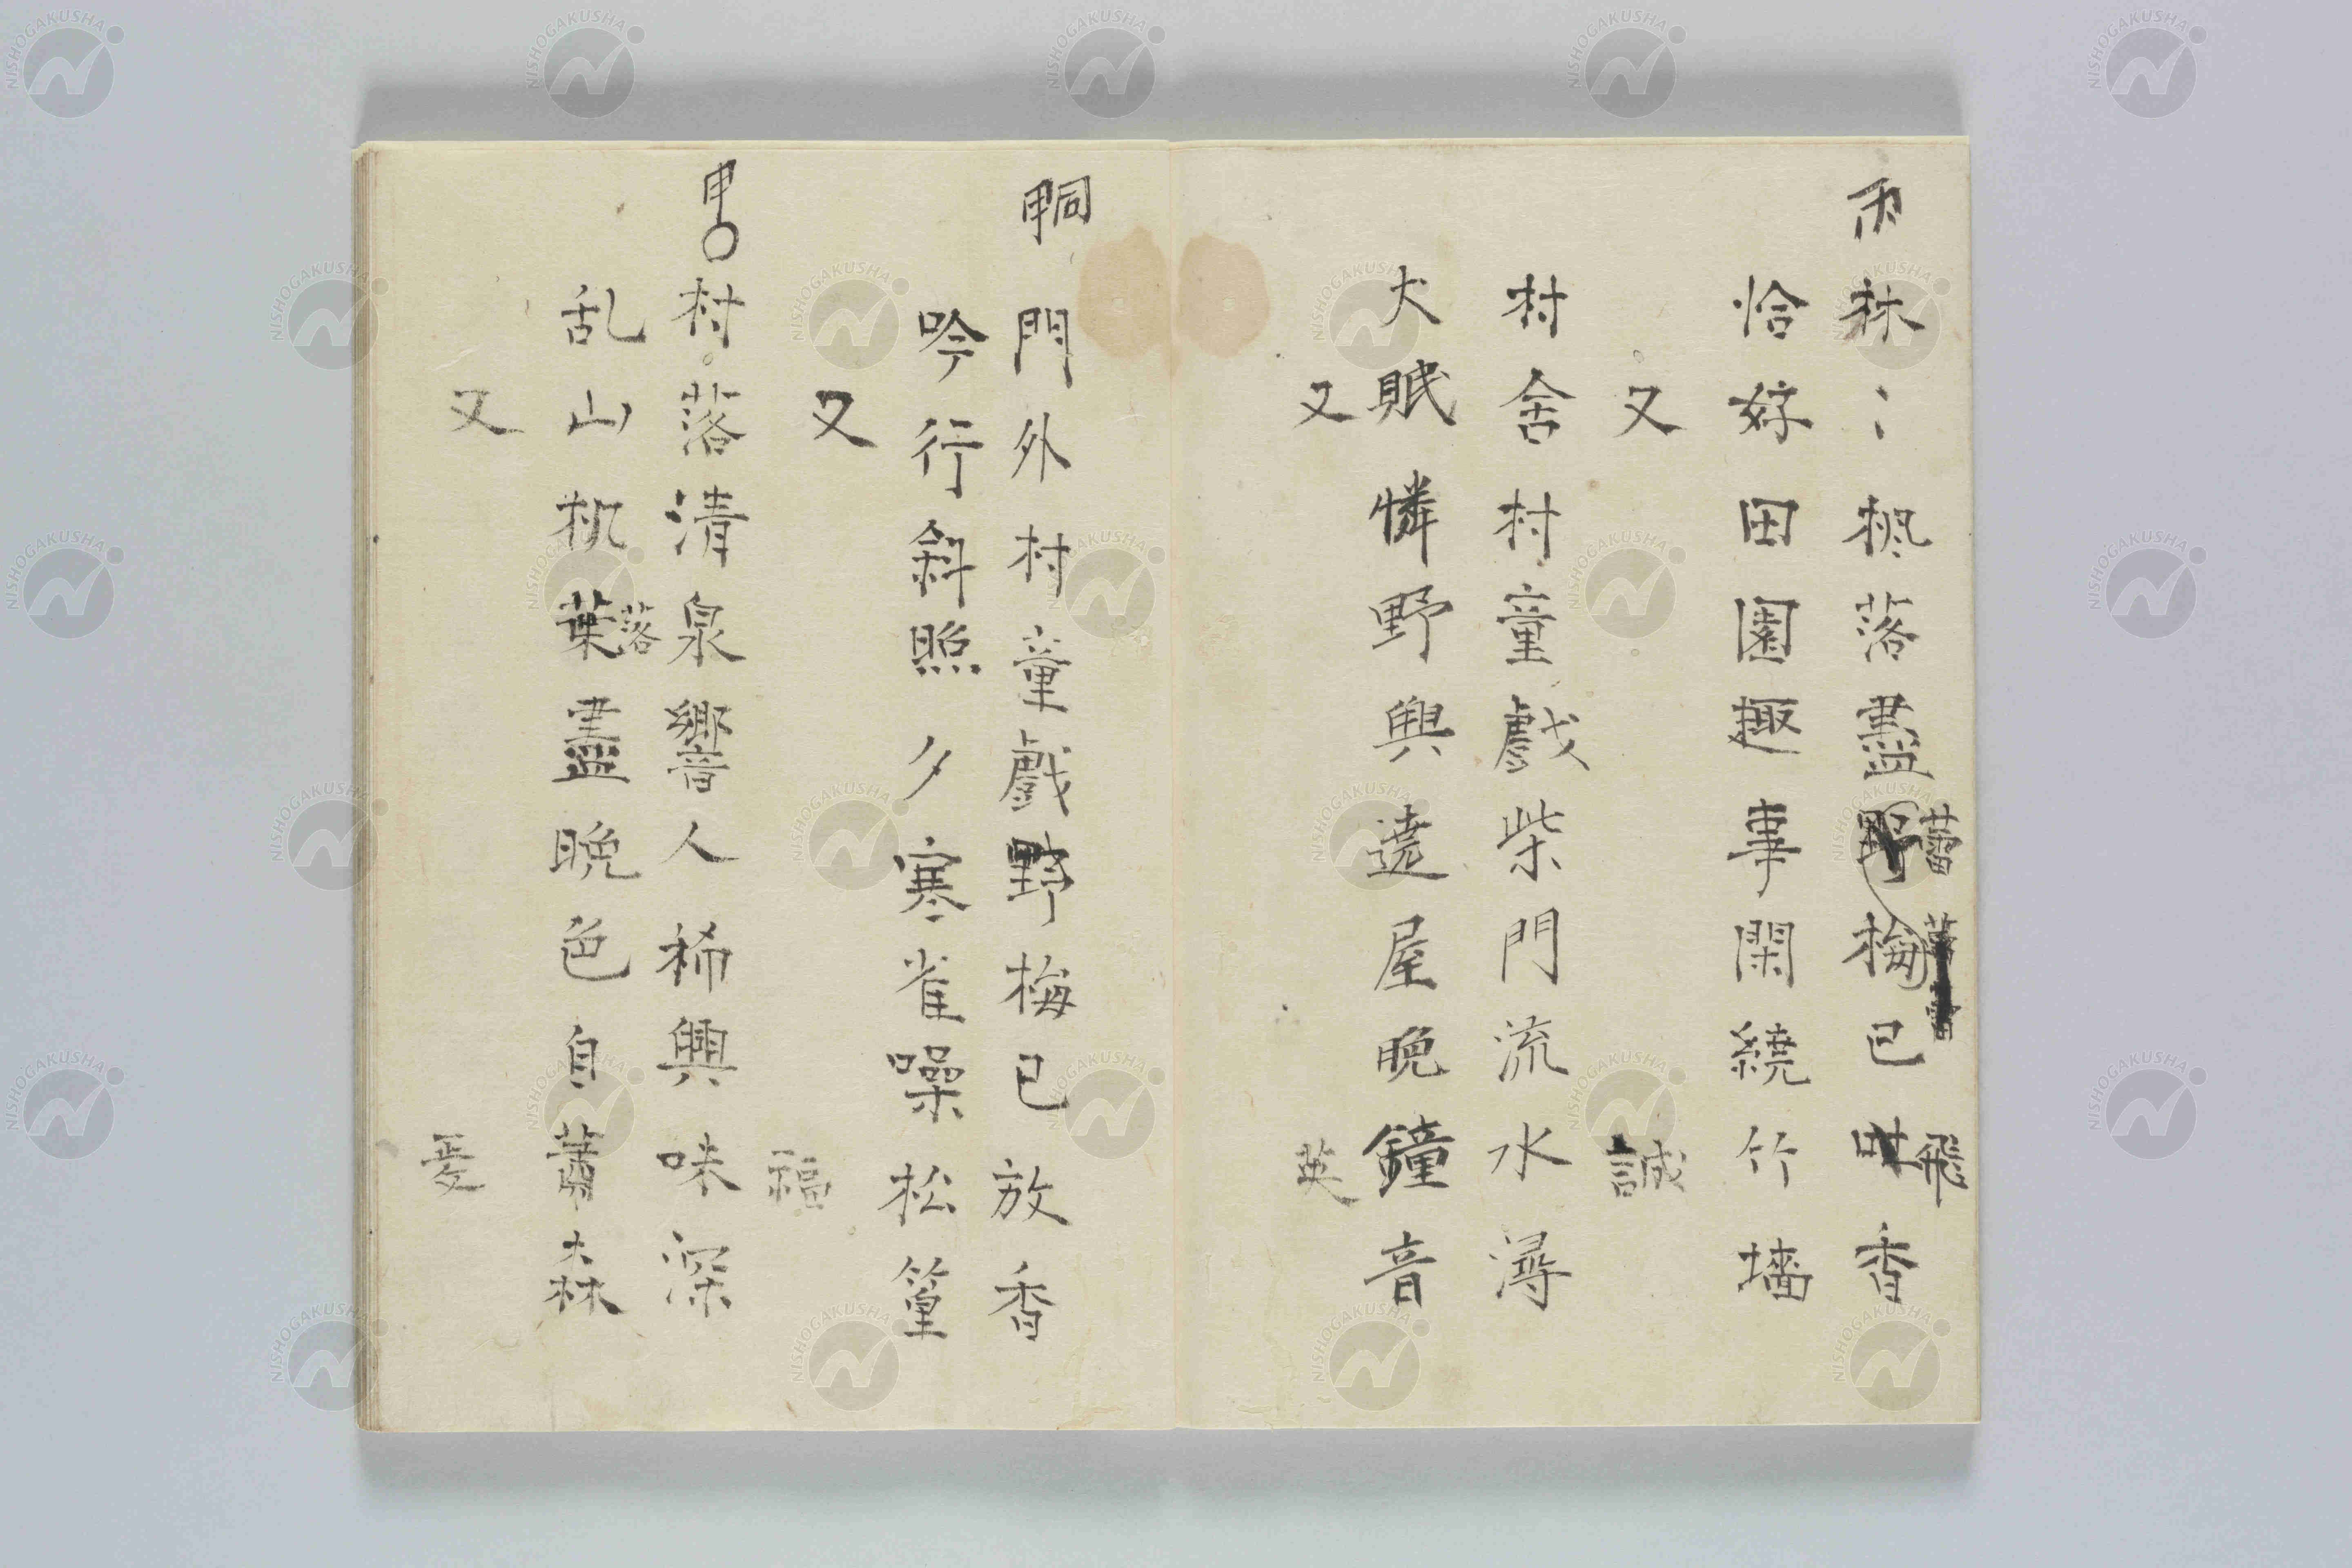 丙
林〻楓落盡野梅已吐香
蕾
飛
恰好田園趣事閑繞竹墻
又 誠
村舍村童戯柴門流水潯
犬眠憐野興遶屋晩鐘音
又 英
甲同
門外村童戯野梅已放香
吟行斜照夕寒雀噪松篁
又 福
甲〇
村落清泉響人稀興味深
乱山机葉盡晩色自蕭森
落
又 爰
NISHOGAKUSHA